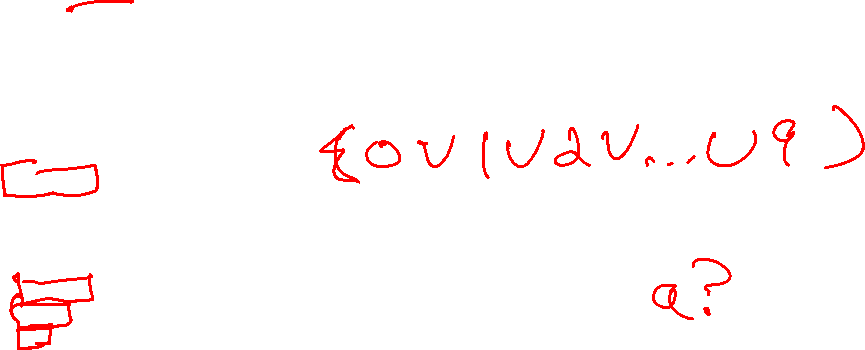 (0∪1∪2∪...∪9)
a?